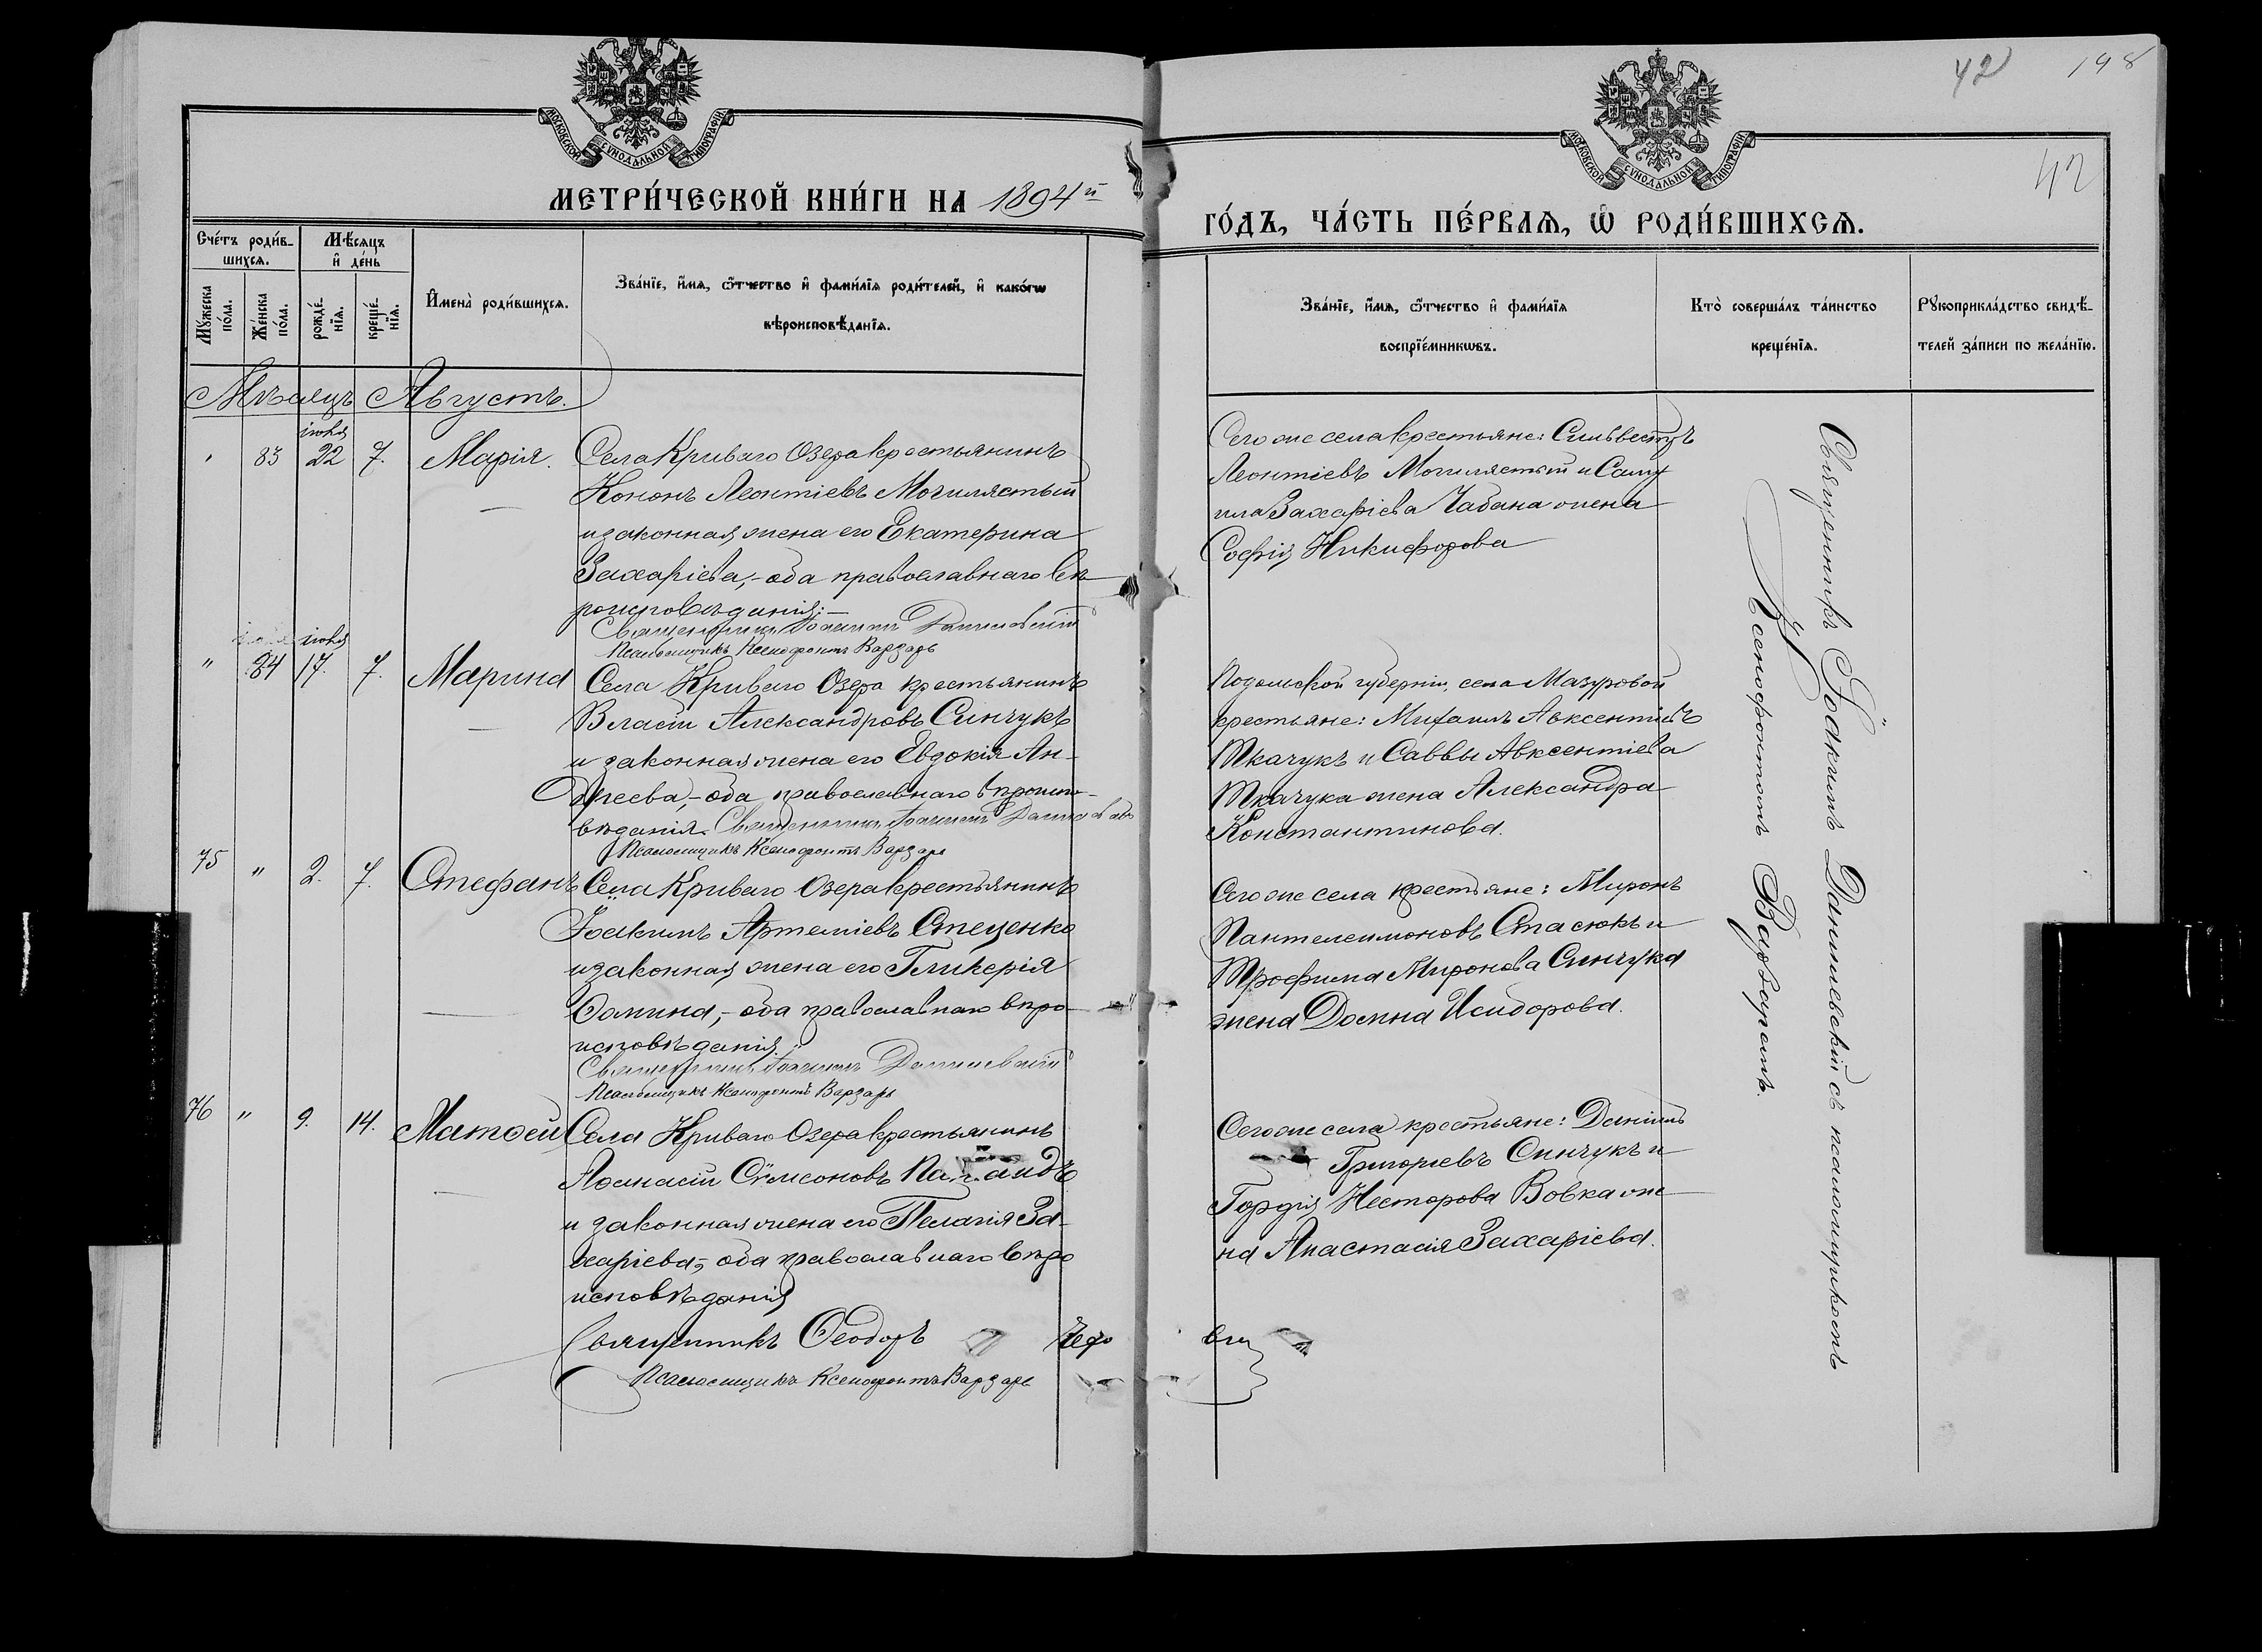 42 198
42
МОСКОВСКОЙ СѴНОДАЛЬНОЙ ТИПОГРАФІИ
МОСКОВСКОЙ СѴНОДАЛЬНОЙ ТИПОГРАФІИ
МЕТРИ́ЧЕСКОЙ КНИ́ГИ НА 1894й
ГО́ДЪ, ЧА́СТЬ ПЕ́РВАѦ, Ѡ҆ РОДИ́ВШИХСѦ.
Сче́тъ роди́в-
шихсѧ.
Мѣ́сѧцъ
и҆ де́нь
Мꙋ́жеска
по́ла.
Же́нска
по́ла.
рожде́-
нїѧ.
креще́-
нїѧ.
И҆мена̀ роди́вшихсѧ.
Зва́нїе, и҆́мѧ, ѻ҆́тчество и҆ фами́лїѧ роди́телей, и҆ како́гѡ
вѣроисповѣ́данїѧ.
Зва́нїе, и҆́мѧ, ѻ҆́тчество и҆ фами́лїѧ
воспрїе́мникѡвъ.
Кто̀ соверша́лъ та́инство
креще́нїѧ.
Рꙋкоприкла́дство свидѣ́-
телей за́писи по жела́нїю.
Мѣсяцъ Августъ.
іюля
83 22 7. Марія. Села Криваго Озера крестьянинъ
Кононъ Леонтіевъ Могилястый
и законная жена его Екатерина
Захаріева,- оба православнаго вѣ-
роисповѣданія;-
Священникъ Іоакимъ Данилевскій
Псаломщикъ Ксенофонтъ Варзарь
Сего же села крестьяне: Сильвестръ
Леонтіевъ Могилястый и Саму
ила Захаріева Чабана жена
Софія Никифорова
іюля
" 84 17. 7. Марина Села Криваго Озера крестьянинъ
Власій Александровъ Синчукъ
и законная жена его Евдокія Ан-
дреева,- оба православнаго вѣроиспо-
вѣданія. Священникъ Іоакимъ
Псаломщикъ Ксенофонтъ Варзарь
Подольской губерніи, села Мазуровой
крестьяне: Михаилъ Авксентіевъ
Ткачукъ и Саввы Авксентіева
Ткачука жена Александра
Константинова.
75 " 2. 7. Стефанъ Села Криваго Озера крестьянинъ
Іоакимъ Артеміевъ Стеценко
и законная жена его Гликерія
Ѳомина,- оба православнаго вѣро-
исповѣданія
Священникъ Іоакимъ Данилевскій
Псаломщикъ Ксенофонтъ Варзарь
Сего же села крестьяне: Миронъ
Пантелеимоновъ Стасюкъ и
Трофима Миронова Синчука
жена Домна Исидорова.
76 " 9. 14. Матѳей Села Криваго Озера крестьянинъ
Аѳанасій Сѵмеоновъ
и законная жена его Пелагія За-
харіева, оба православнаго вѣро
исповѣданія
Священникъ Ѳеодоръ
Псаломщикъ Ксенофонтъ Варзарь
Сего же села крестьяне: Даніилъ
Григоріевъ Синчукъ и
Гордія Несторова Вовка же-
на Анастасія Захаріева.
Священникъ Іоакимъ Данилевскій съ псаломщикомъ
Ксенофонтомъ Варзаремъ.